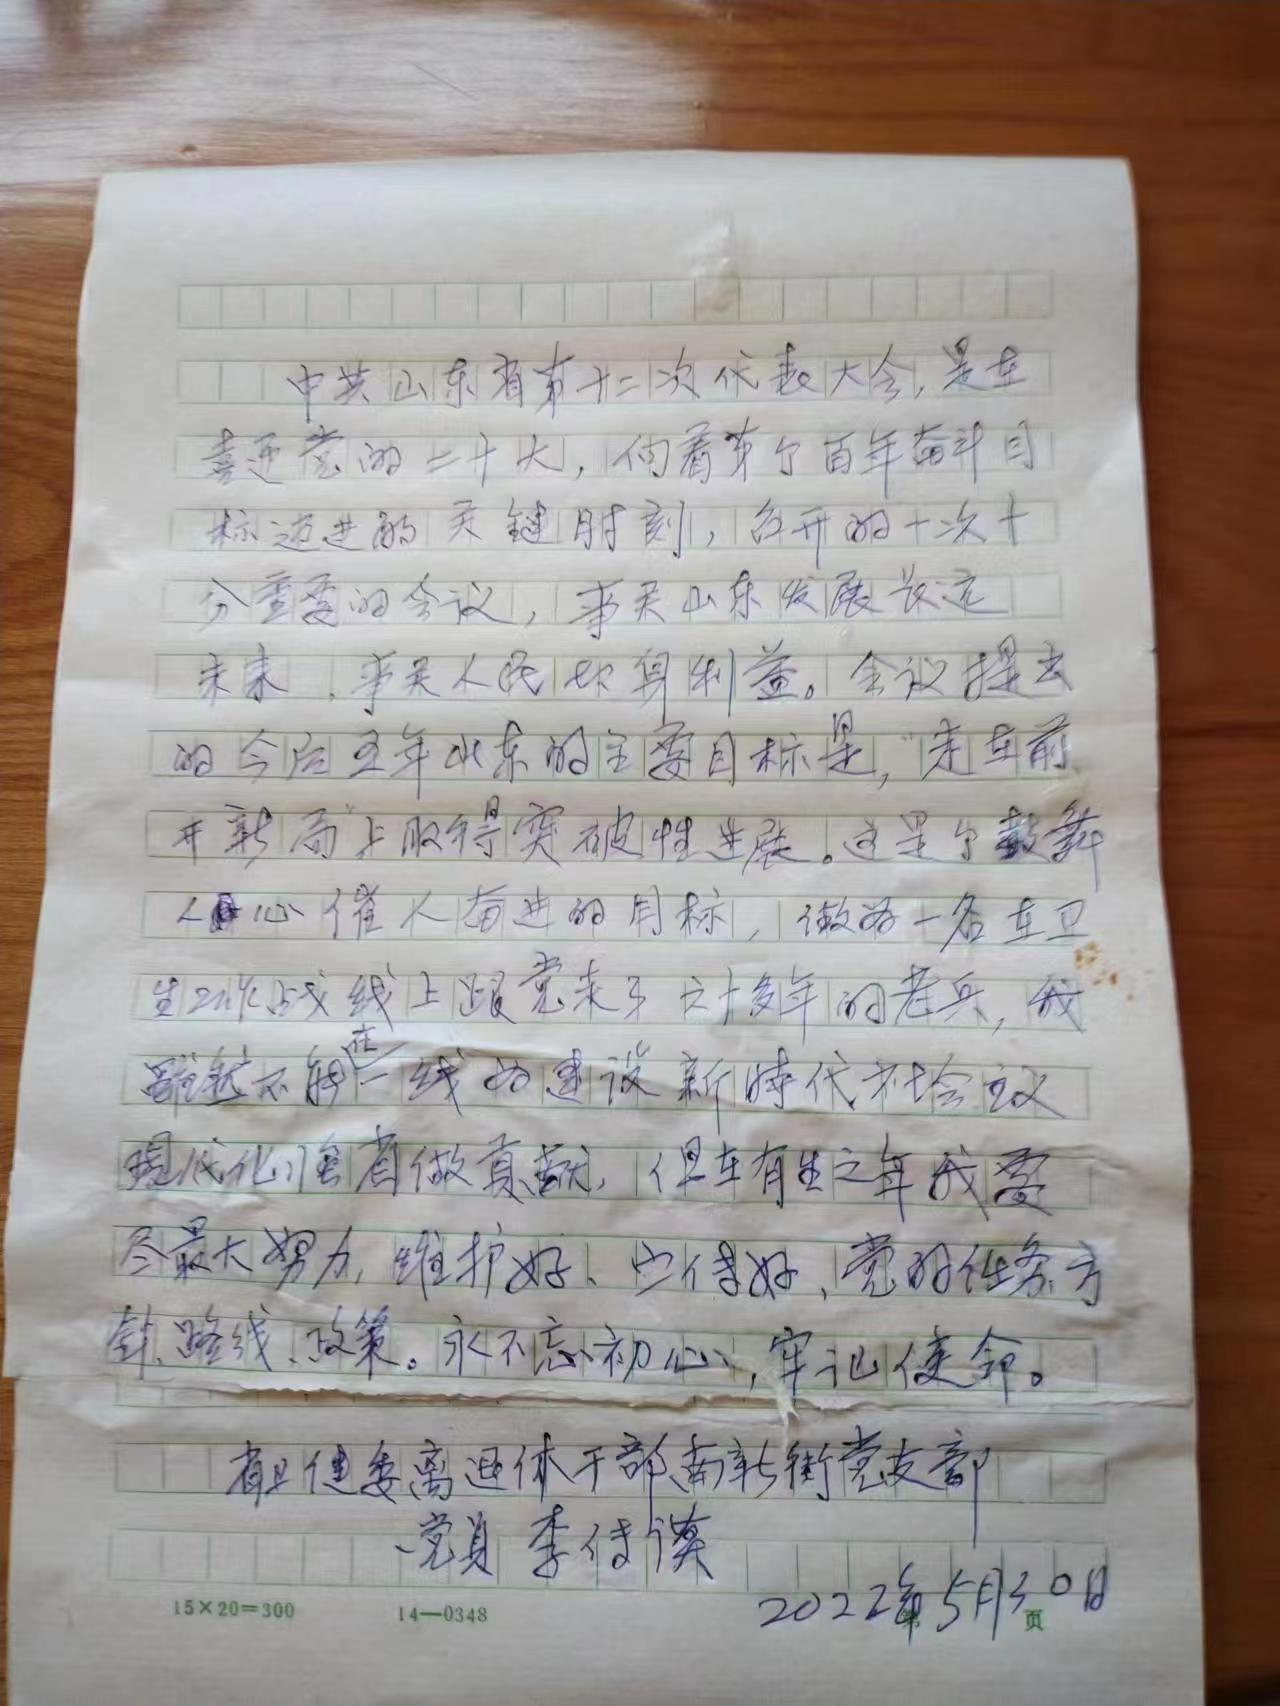 中共山东省第十二次代表大会，是在
喜迎党的二十大，向着第个百年奋斗目
标迈进的关键时刻，召开的一次十
分重要的会议，事关山东发展长远
未来、事关人民切身利益。会议提出
的今后五年山东的主要目标是，"走在前
开新局"上取得突破性进展。这是个鼓舞
人心催人奋进的目标，做为一名在卫
生战线上跟党走了六十多年的老兵，我
虽然不能在一线为建设新时代社会主义
现代化强省做贡献，但在有生之年我要
尽最大努力，维护好、宣传好、党的任务方
针、路线、政策。永不忘初心，牢记使命。
省卫健委离退休干部南新街党支部
党员 李传
2022年5月30日
15×20=300 14—0348 页